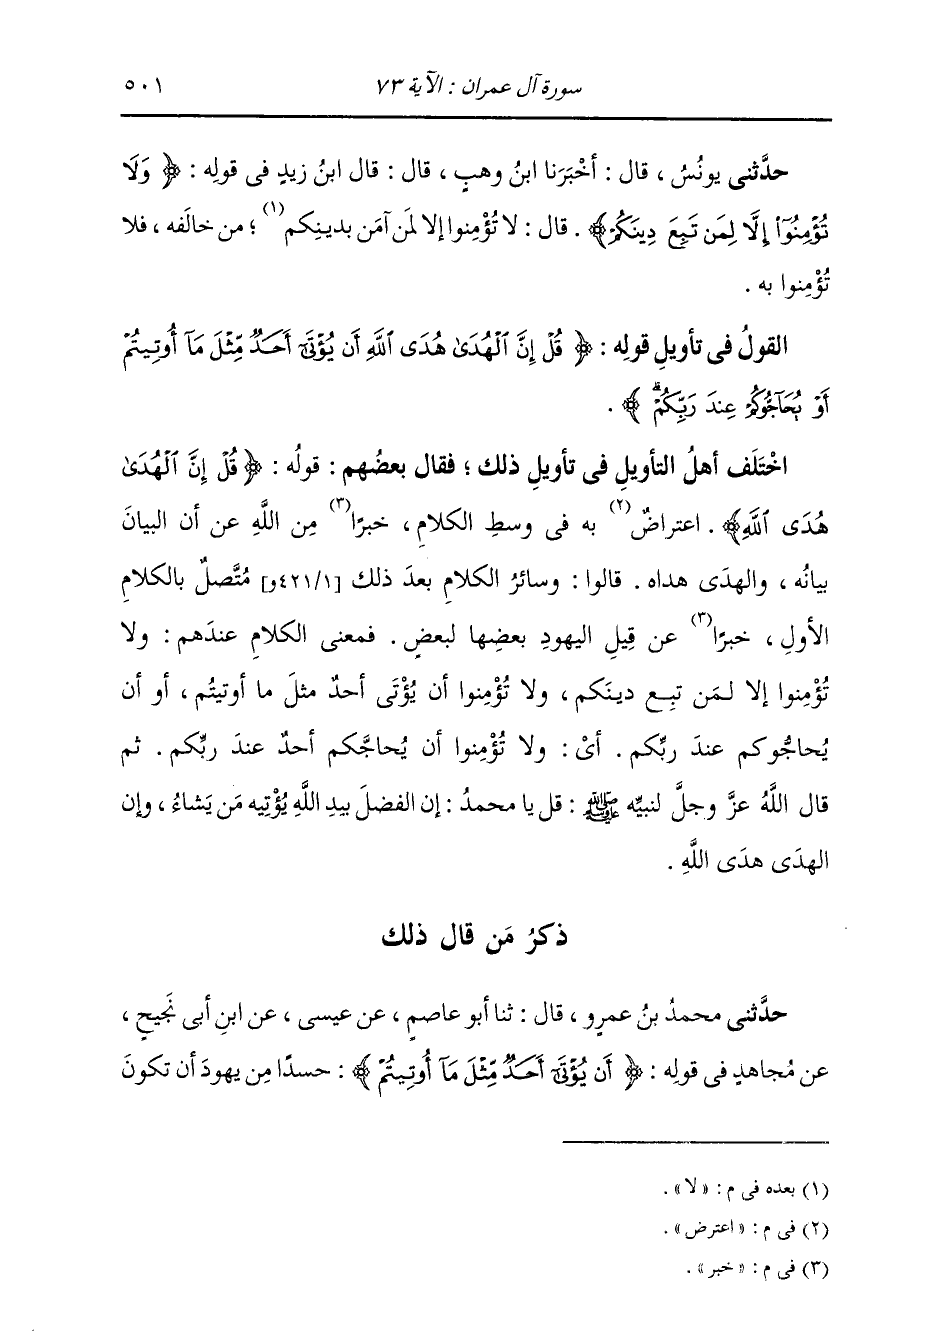 سورة آل عمران : الآية ٧٣ ٥٠١
حدَّثنى يونُسُ ، قال : أخْبَرَنا ابنُ وهبٍ ، قال : قال ابنُ زيدٍ فى قولِه : ﴿ وَلَا
تُؤْمِنُوٓا۟ إِلَّا لِمَن تَبِعَ دِينَكُمْ﴾ . قال : لا تُؤْمِنوا إلا لمَن آمَن بدينِكم(١) ؛ من خالَفه ، فلا
تُؤْمِنوا به .
القولُ فى تأويلِ قولِه : ﴿ قُلْ إِنَّ ٱلْهُدَىٰ هُدَى ٱللَّهِ أَن يُؤْتَىٰٓ أَحَدٌ مِّثْلَ مَآ أُوتِيتُمْ
أَوْ يُحَآجُّوكُمْ عِندَ رَبِّكُمْ ۗ ﴾ .
اخْتَلَف أهلُ التأويلِ فى تأويلِ ذلك ؛ فقال بعضُهم : قولُه : ﴿ قُلْ إِنَّ ٱلْهُدَىٰ
هُدَى ٱللَّهِ﴾ . اعتراضٌ(٢) به فى وسطِ الكلامِ ، خبرًا(٣) مِن اللَّهِ عن أن البيانَ
بيانُه ، والهدَى هداه . قالوا : وسائرُ الكلامِ بعدَ ذلك [٤٢١/١و] مُتَّصلٌ بالكلامِ
الأولِ ، خبرًا(٣) عن قِيلِ اليهودِ بعضِها لبعضٍ . فمعنى الكلامِ عندَهم : ولا
تُؤْمِنوا إلا لـمَن تبِـع دينَكم ، ولا تُؤْمِنوا أن يُؤْتَى أحدٌ مثلَ ما أوتيتُم ، أو أن
يُحاجُّوكم عندَ ربِّكم . أىْ : ولا تُؤْمِنوا أن يُحاجَّكم أحدٌ عندَ ربِّكم . ثم
قال اللَّهُ عزَّ وجلَّ لنبيِّه ﷺ : قل يا محمدُ : إن الفضلَ بيدِ اللَّهِ يُؤْتِيه مَن يَشاءُ ، وإن
الهدَى هدَى اللَّهِ .
ذكرُ مَن قال ذلك
حدَّثنى محمدُ بنُ عمرٍو ، قال : ثنا أبو عاصمٍ ، عن عيسى ، عن ابنِ أبى نَجيحٍ ،
عن مُجاهدٍ فى قولِه : ﴿ أَن يُؤْتَىٰٓ أَحَدٌ مِّثْلَ مَآ أُوتِيتُمْ ﴾ : حسدًا مِن يهودَ أن تكونَ
(١) بعده فى م : « لا » .
(٢) فى م : « اعترض » .
(٣) فى م : « خبر » .